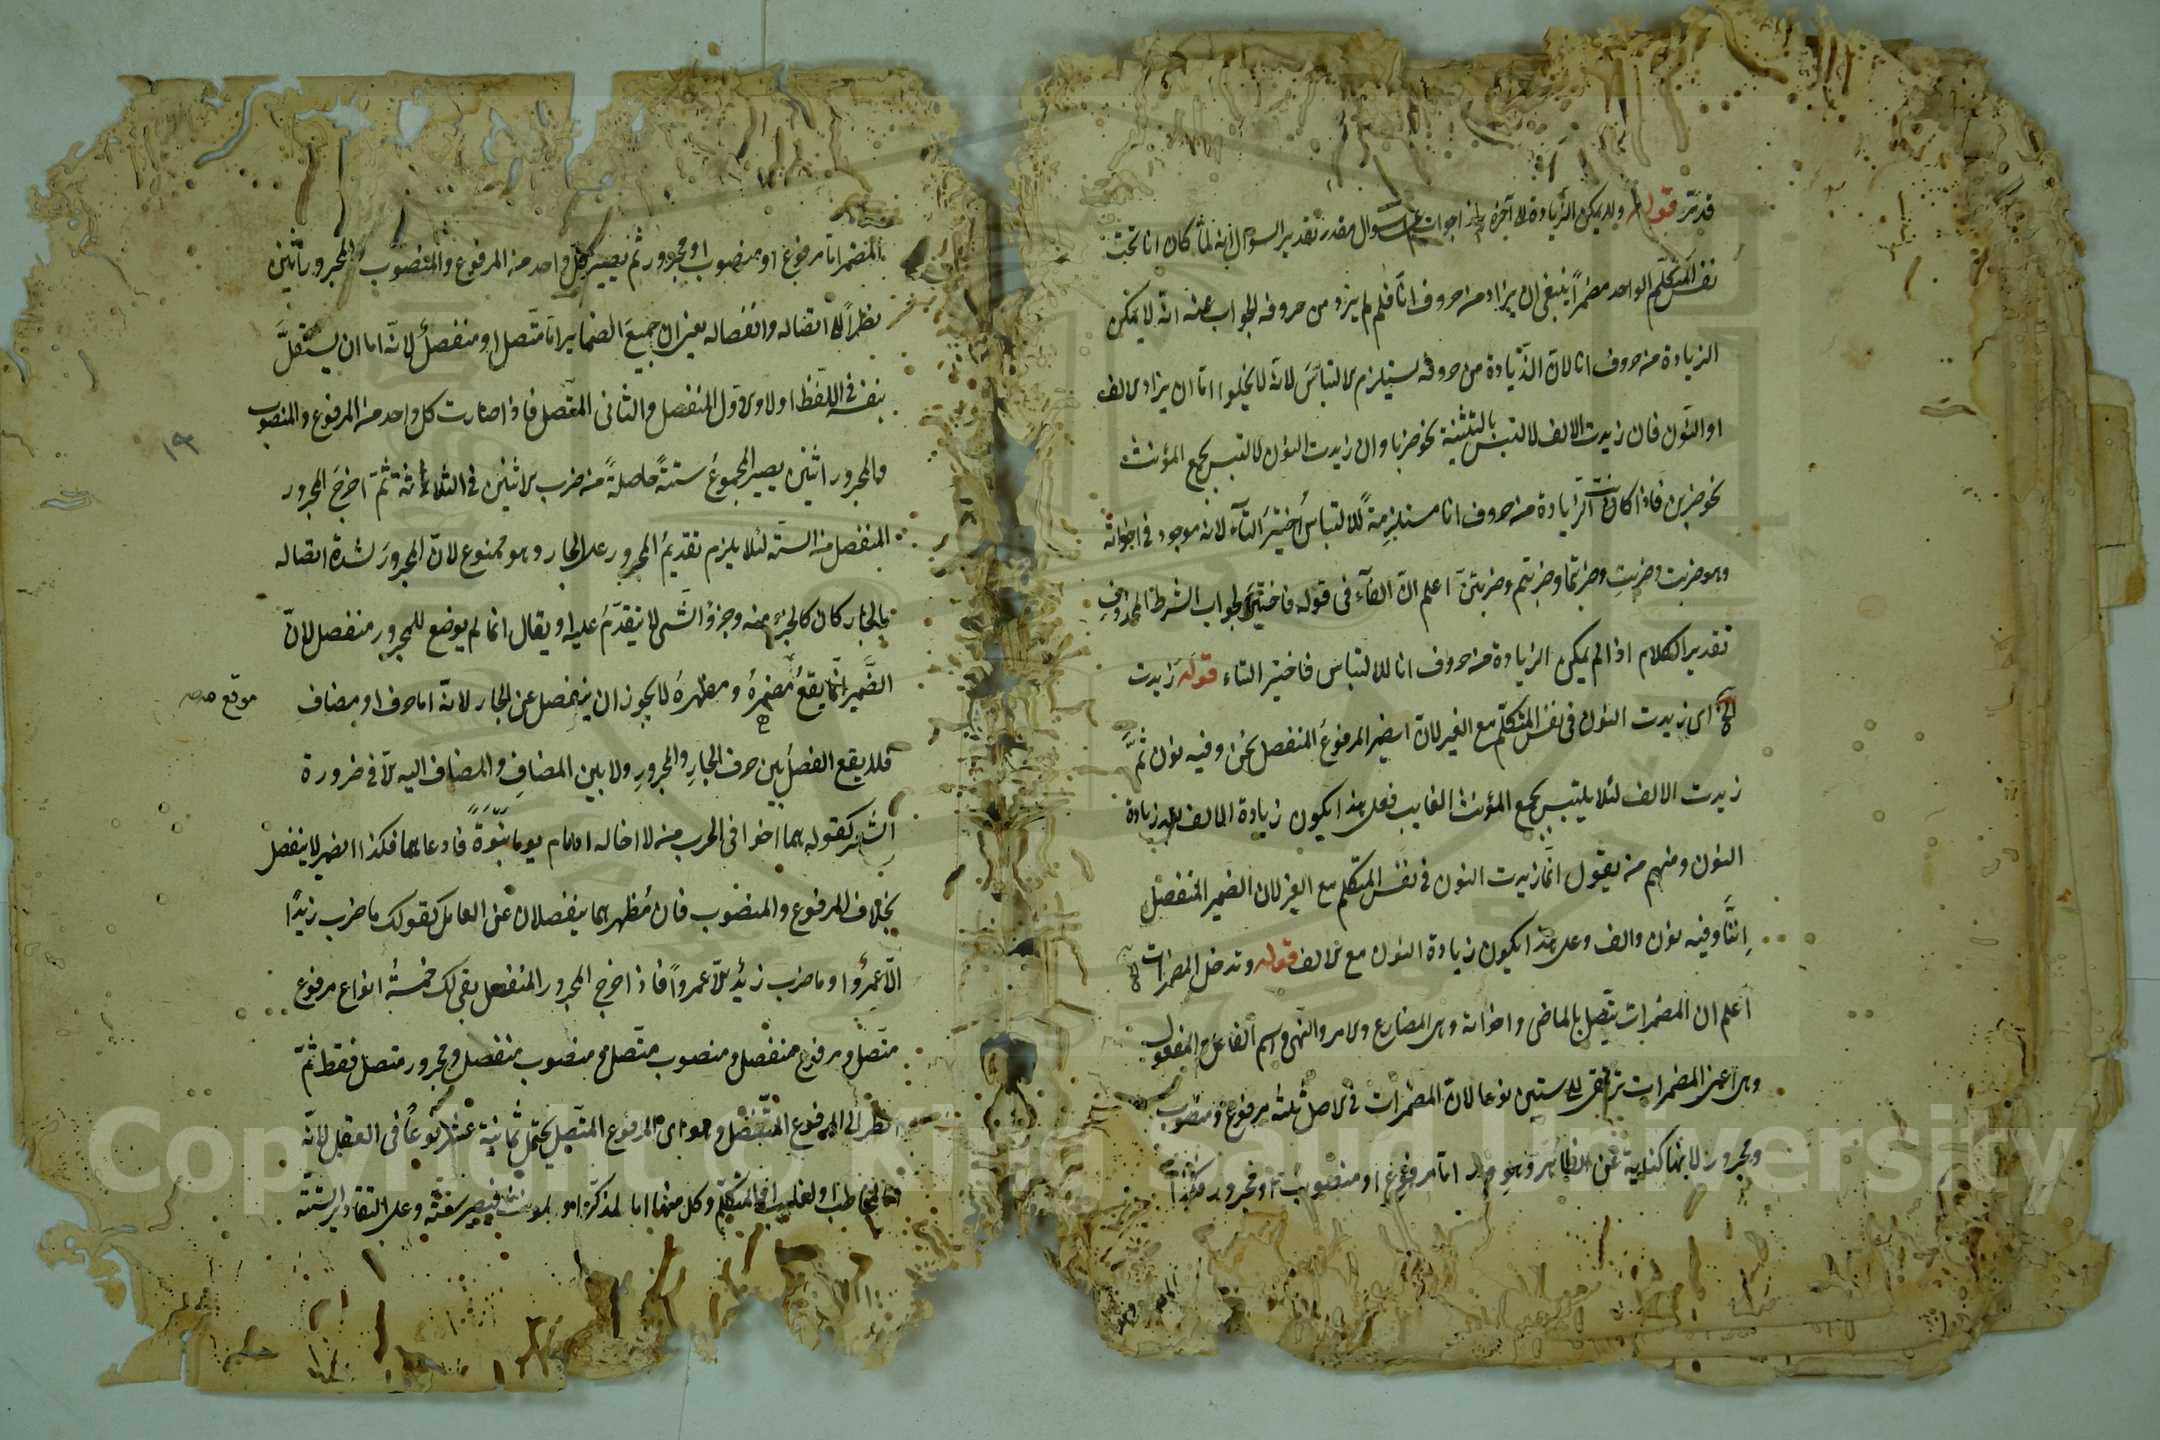 قد مر قوله ولا يمكن الزيادة الى آخره هذا جواب عن سوال مقدر تقدير السوال انه لما كان انا تحت
نفس المتكلم الواحد مضمرا ينبغى ان يزاد من حروف انا فلم لم يزد من حروفه الجواب عنه انه لا يمكن
الزيادة من حروف انا لان الزيادة من حروفه يستلزم الالتباس لانه لا يخلوا اما ان يزاد الالف
او النون فان زيدت الالف لالتبس بالتثنية نحو ضربا وان زيدت النون لالتبس بجمع المؤنث
نحو ضربن فاذا كانت الزيادة من حروف انا مستلزمة للالتباس اختير التاء لانه موجود فى اخواته
وهو ضربت وضربت وضربتما وضربتم وضربتن اعلم ان الفاء فى قوله فاختير لجواب الشرط المحذوف
تقدير الكلام اذا لم يمكن الزيادة من حروف انا للالتباس فاختير التاء قوله زيدت
الخ اى زيدت النون فى نفس المتكلم مع الغير لان الضمير المرفوع المنفصل نحن وفيه نون ثم
زيدت الالف لئلا يلتبس بجمع المؤنث الغايب فعلى هذا يكون زيادة الالف بعد زيادة
النون ومنهم من يقول انما زيدت النون فى نفس المتكلم مع الغير لان الضمير المنفصل
اننا وفيه نون والف وعلى هذا يكون زيادة النون مع الالف قوله وتدخل المضمرات الخ
اعلم ان المضمرات يتصل بالماضى واخواته وهى المضارع والامر والنهى واسم الفاعل والمفعول
وهى اعنى المضمرات ترتقى الى ستين نوعا لان المضمرات فى الاصل ثلثة مرفوع ومنصوب
ومجرور لانها كناية عن الظاهر وهو اما مرفوع او منصوب او مجرور فكذا
المضمر اما مرفوع او منصوب او مجرور ثم يصير كل واحد من المرفوع والمنصوب والمجرور اثنين
نظرا الى اتصاله وانفصاله يعنى ان جميع الضماير اما متصل او منفصل لانه اما ان يستقل
بنفسه فى اللفظ اولا والاول المنفصل والثانى المتصل فاذا صارت كل واحد من المرفوع والمنصوب
والمجرور اثنين يصير المجموع ستة حاصلة من ضرب الاثنين فى الثلاثة ثم اخرج المجرور
المنفصل من الستة لئلا يلزم تقديم المجرور على الجار وهو ممنوع لان المجرور لشدة اتصاله
بالجار كان كالجزء منه وجزؤ الشى لا يتقدم عليه او يقال انما لم يوضع للمجرور منفصل لان
الضمير انما يقع مضمره ومظهره لا يجوز ان ينفصل عن الجار لانه اما حرف او مضاف
موقع
فلا يقع الفصل بين حرف الجار والمجرور ولا بين المضاف والمضاف اليه الا فى ضرورة
الشعر كقوله هما اخوا فى الحرب من لا اخا له اذا خاف يوما نبوة فادعاهما فكذا الضمير لا ينفصل
بخلاف المرفوع والمنصوب فان مظهرهما ينفصلان عن العامل كقولك ما ضرب زيدا
الا عمرو او ما ضرب زيد الا عمروا فاذا اخرج المجرور المنفصل بقى لك خمسة انواع مرفوع
متصل ومرفوع منفصل ومنصوب متصل ومنصوب منفصل ومجرور متصل فقط ثم
انظر الى المرفوع المتصل وهو اى المرفوع المتصل يحتمل ثمانية عشر نوعا فى العقل لانه
اما المخاطب او الغايب او المتكلم وكل منها اما لمذكر او لمونث فيصير ستة وعلى التقادير الستة